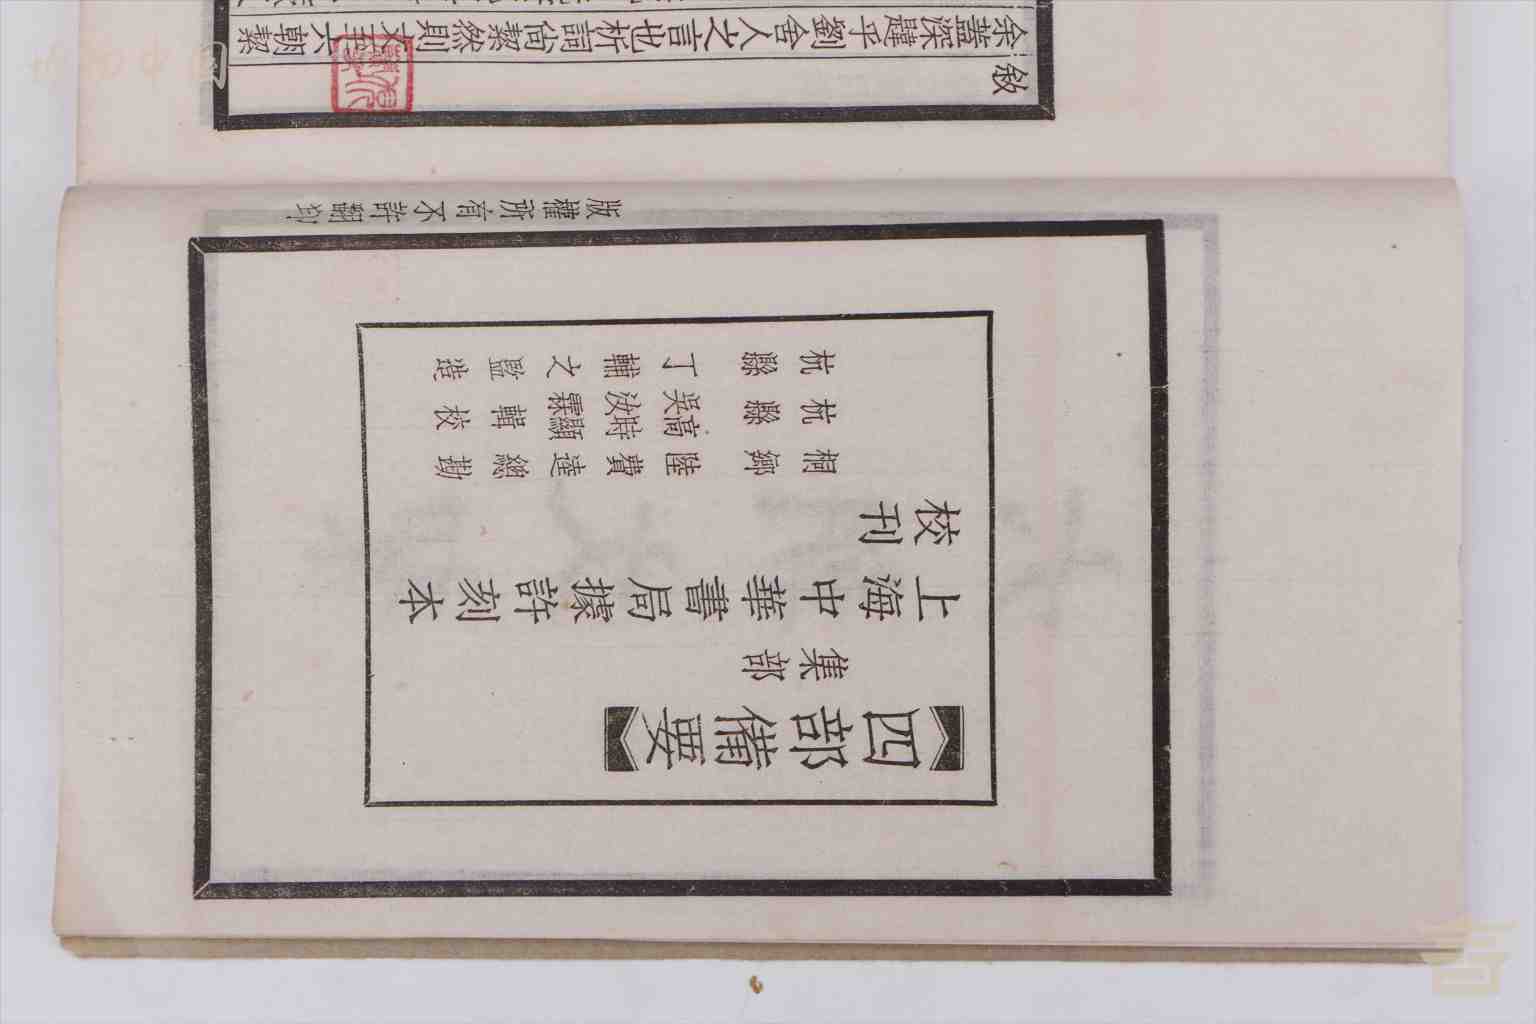 四部備要
集部
上海中華書局據許刻本
校刊
桐鄉 陸費逵 總勘
杭縣 高時顯 吳汝霖 輯校
杭縣 丁輔之 監造
版權所有不許翻印
敘
余蓋深韙乎劉舍人之言也析詞尚絜然則文至六朝絜